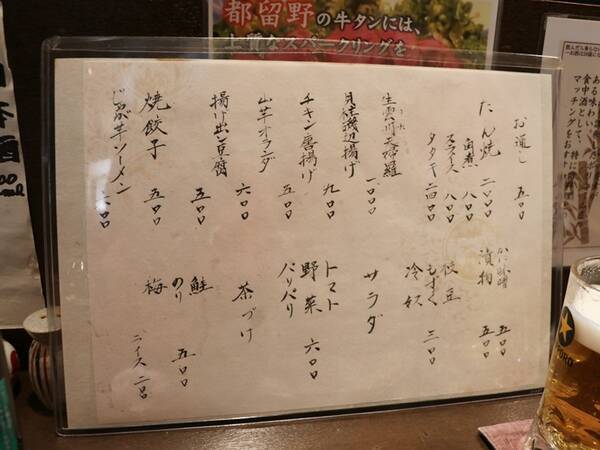 都留野の牛タンには、
上質なスパークリングを
お通し 五〇〇
たん焼 二〇〇〇
角煮 八〇〇
スライス 八〇〇
タタキ 二四〇〇
生雲丹天婦羅 一〇〇〇
貝柱磯辺揚げ 九〇〇
チキン唐揚げ 五〇〇
山芋オランダ 六〇〇
揚げ出し豆腐 五〇〇
焼餃子 五〇〇
じゃが芋ソーメン 六〇〇
五〇〇
漬物 五〇〇
枝豆
もずく 三〇〇
冷奴
サラダ
トマト
野菜 六〇〇
パリパリ
茶づけ
鮭
のり 五〇〇
梅
ライス 二〇〇